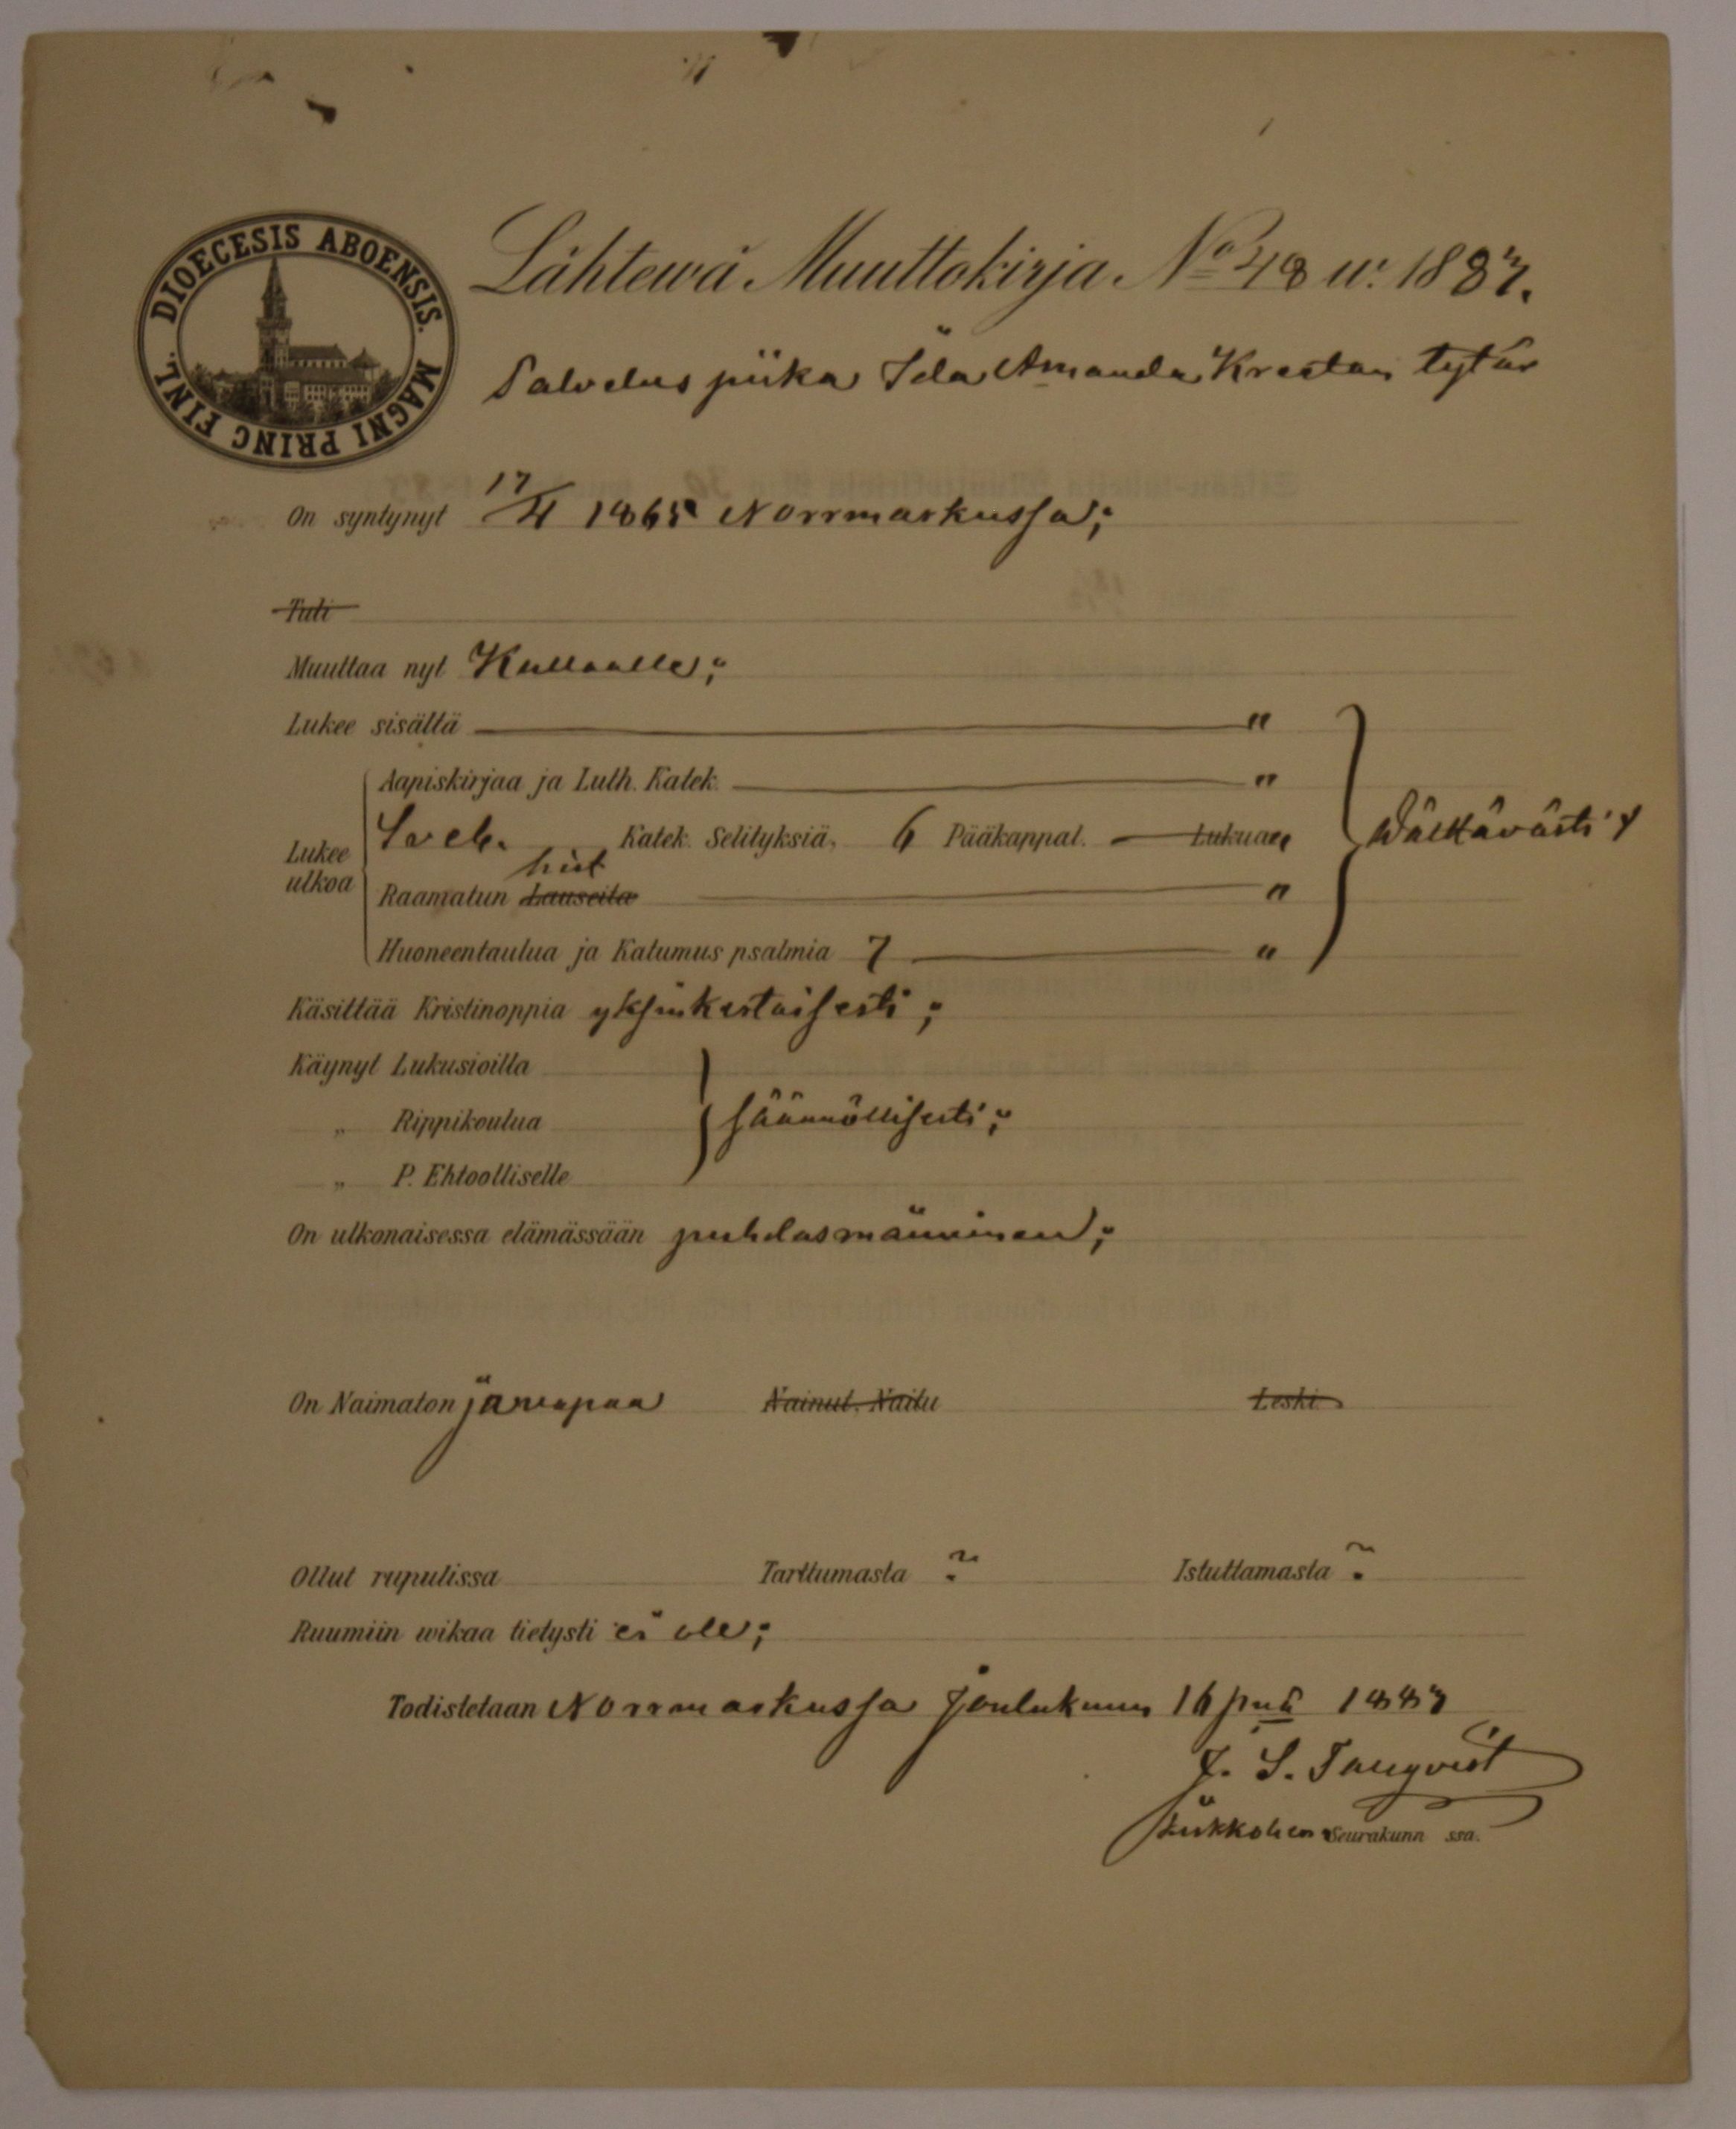 DIOECESIS ABOENSIS. MAGNI PRINC FINL.
Lähtewä Muuttokirja No 48 w. 1887.
Palvelus piika Ida Amanda Krestan tytär
On syntynyt 17/4 1865 Norrmarkussa;
Tuli
Muuttaa nyt Kullaalle;
Lukee sisältä "
Aapiskirjaa ja Luth. Katek. "
Lukee ulkoa Sveb. Katek. Selityksiä, 6 Pääkappal. Lukua " Wälttävästi
hist
Raamatun Lauseita "
Huoneentaulua ja Katumus psalmia 7 "
Käsittää Kristinoppia yksinkertaisesti;
Käynyt Lukusioilla
„ Rippikoulua säännöllisesti;
„ P. Ehtoolliselle
On ulkonaisessa elämässään puhdasmaineinen;
On Naimaton ja vapaa Nainut, Naitu Leski
Ollut rupulissa Tarttumasta ? Istuttamasta ?
Ruumiin wikaa tietysti ei ole;
Todistetaan Norrmarkussa Joulukuun 16 pnä 1887
Kirkkoherra Seurakunn ssa.